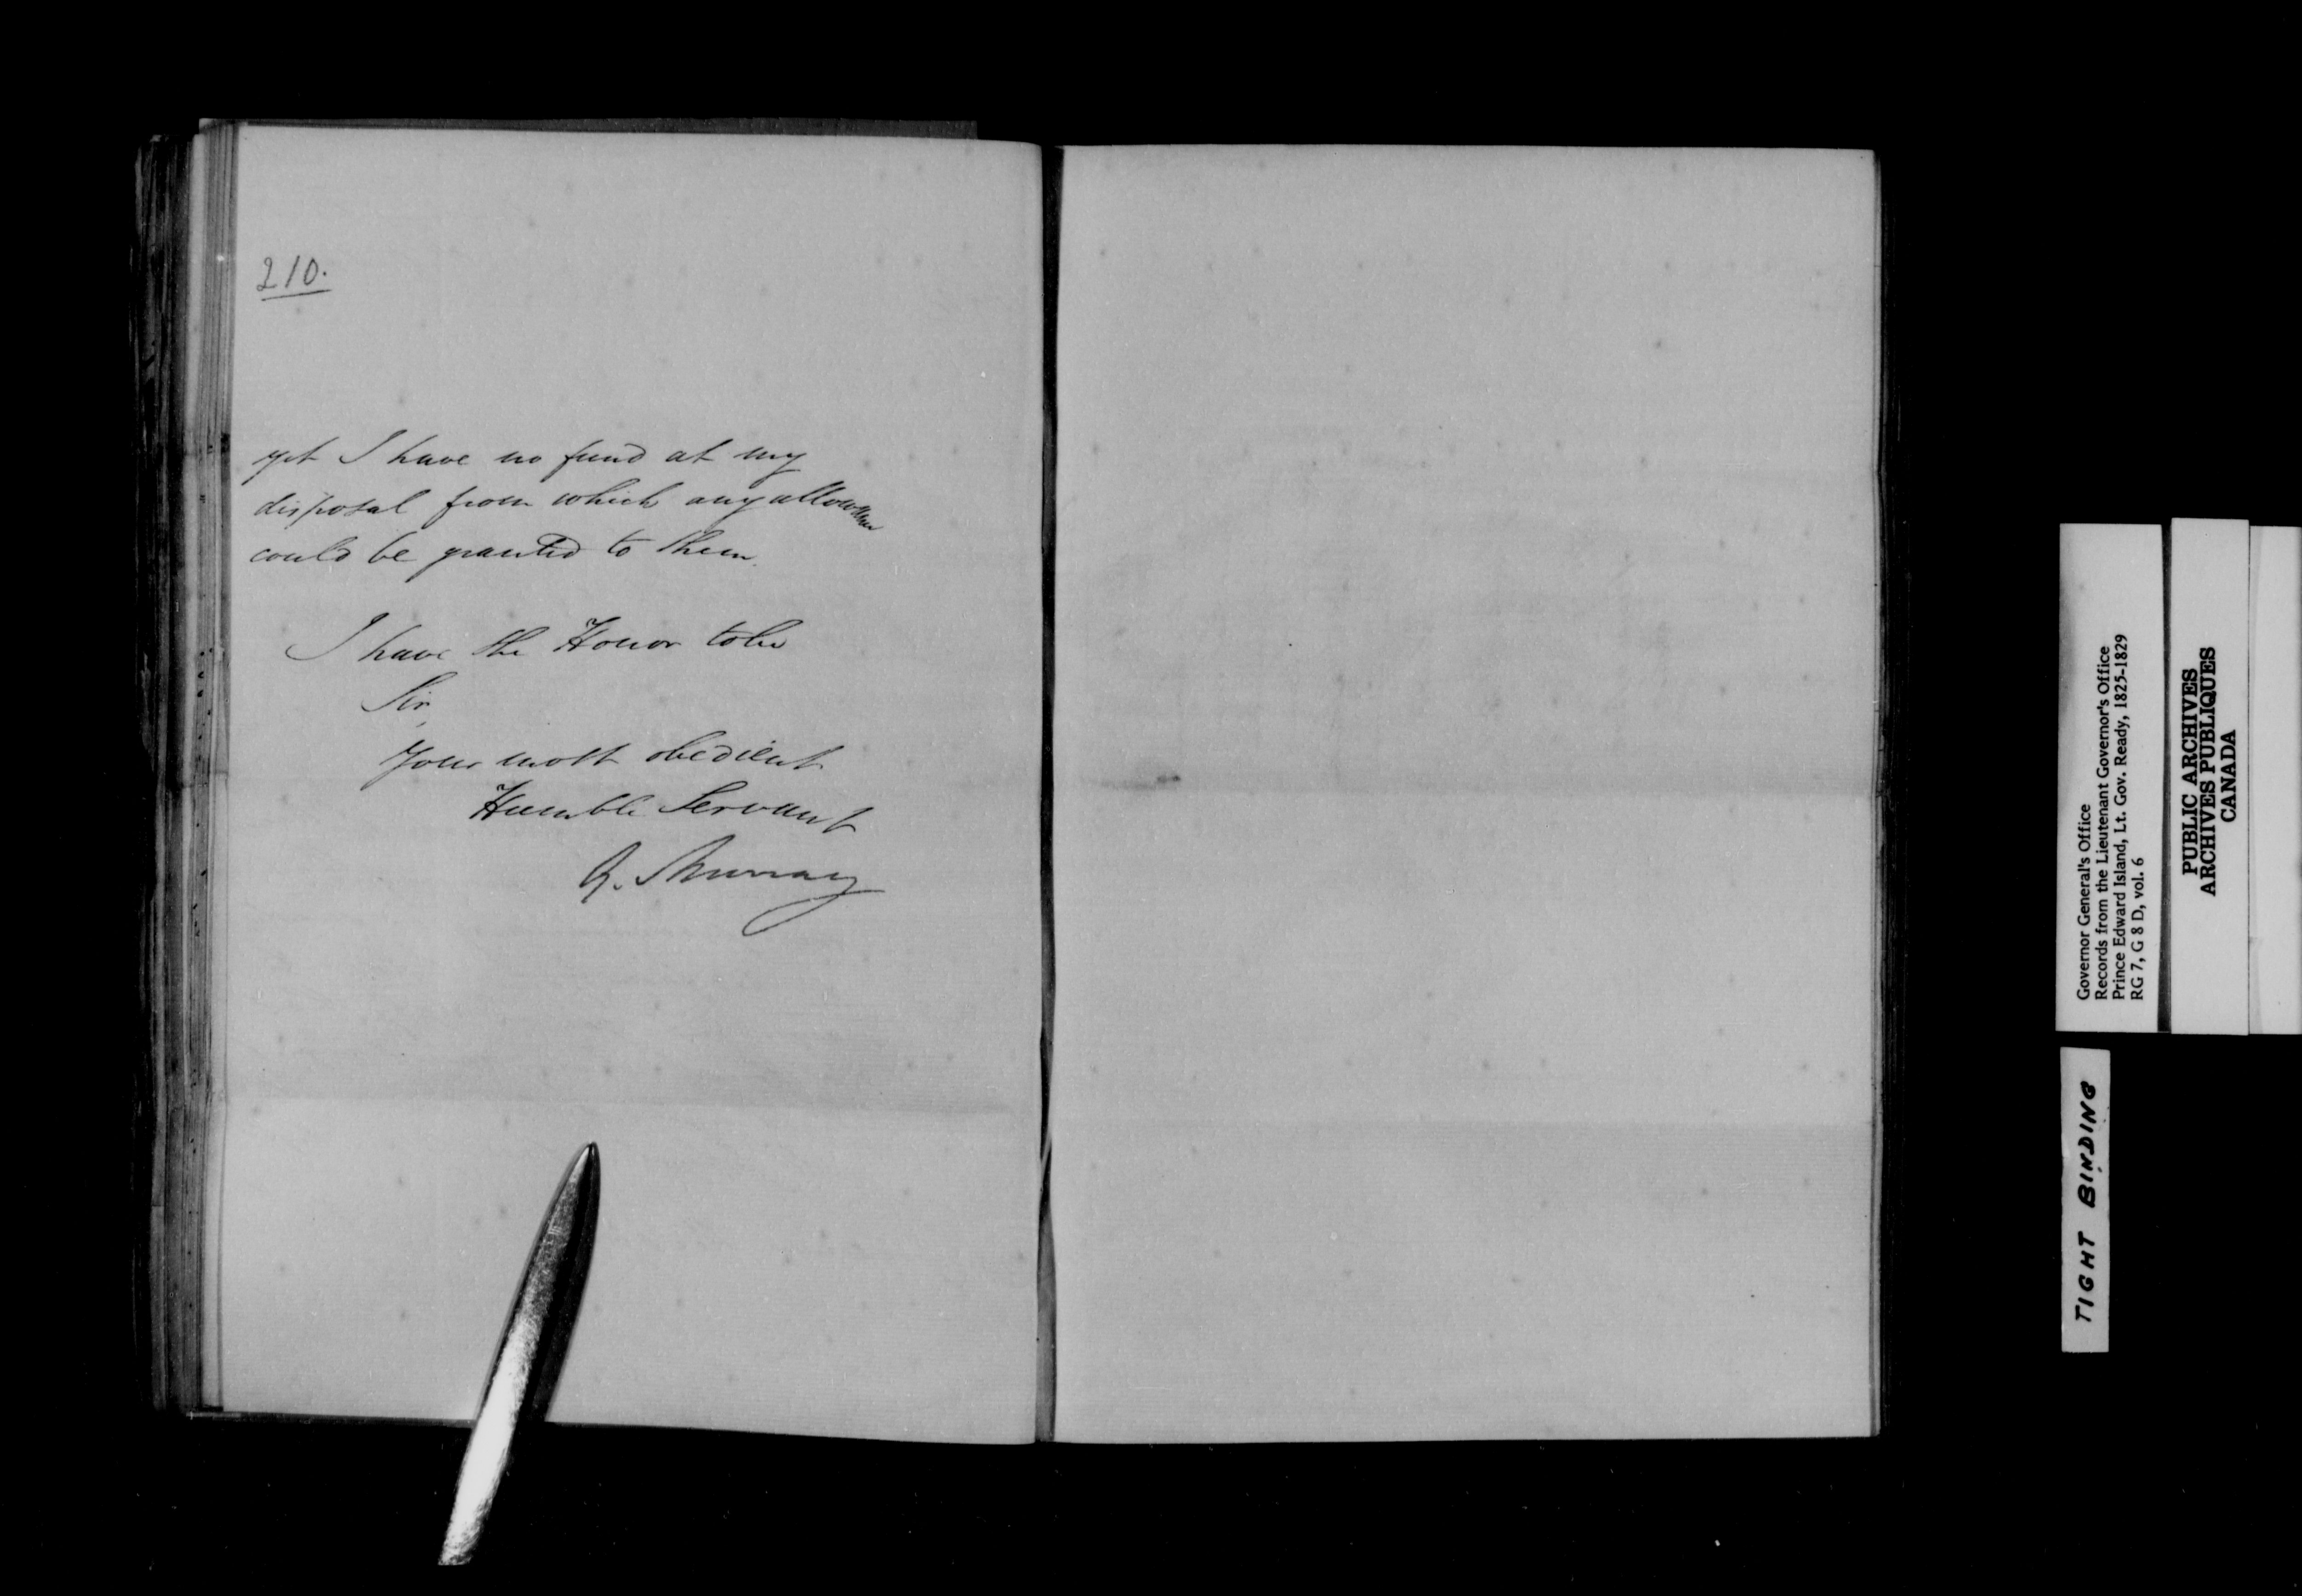 210.
yet I have no fund at my
disposal from which any allowance
could be granted to them.
I have the Honor to be
Sir,
Your most obedient
Humble Servant
G. Murray
Governor General's Office
Records from the Lieutenant Governor's Office
Prince Edward Island, Lt. Gov. Ready, 1825-1829
RG 7, G 8 D, vol. 6
PUBLIC ARCHIVES
ARCHIVES PUBLIQUES
CANADA
TIGHT BINDING